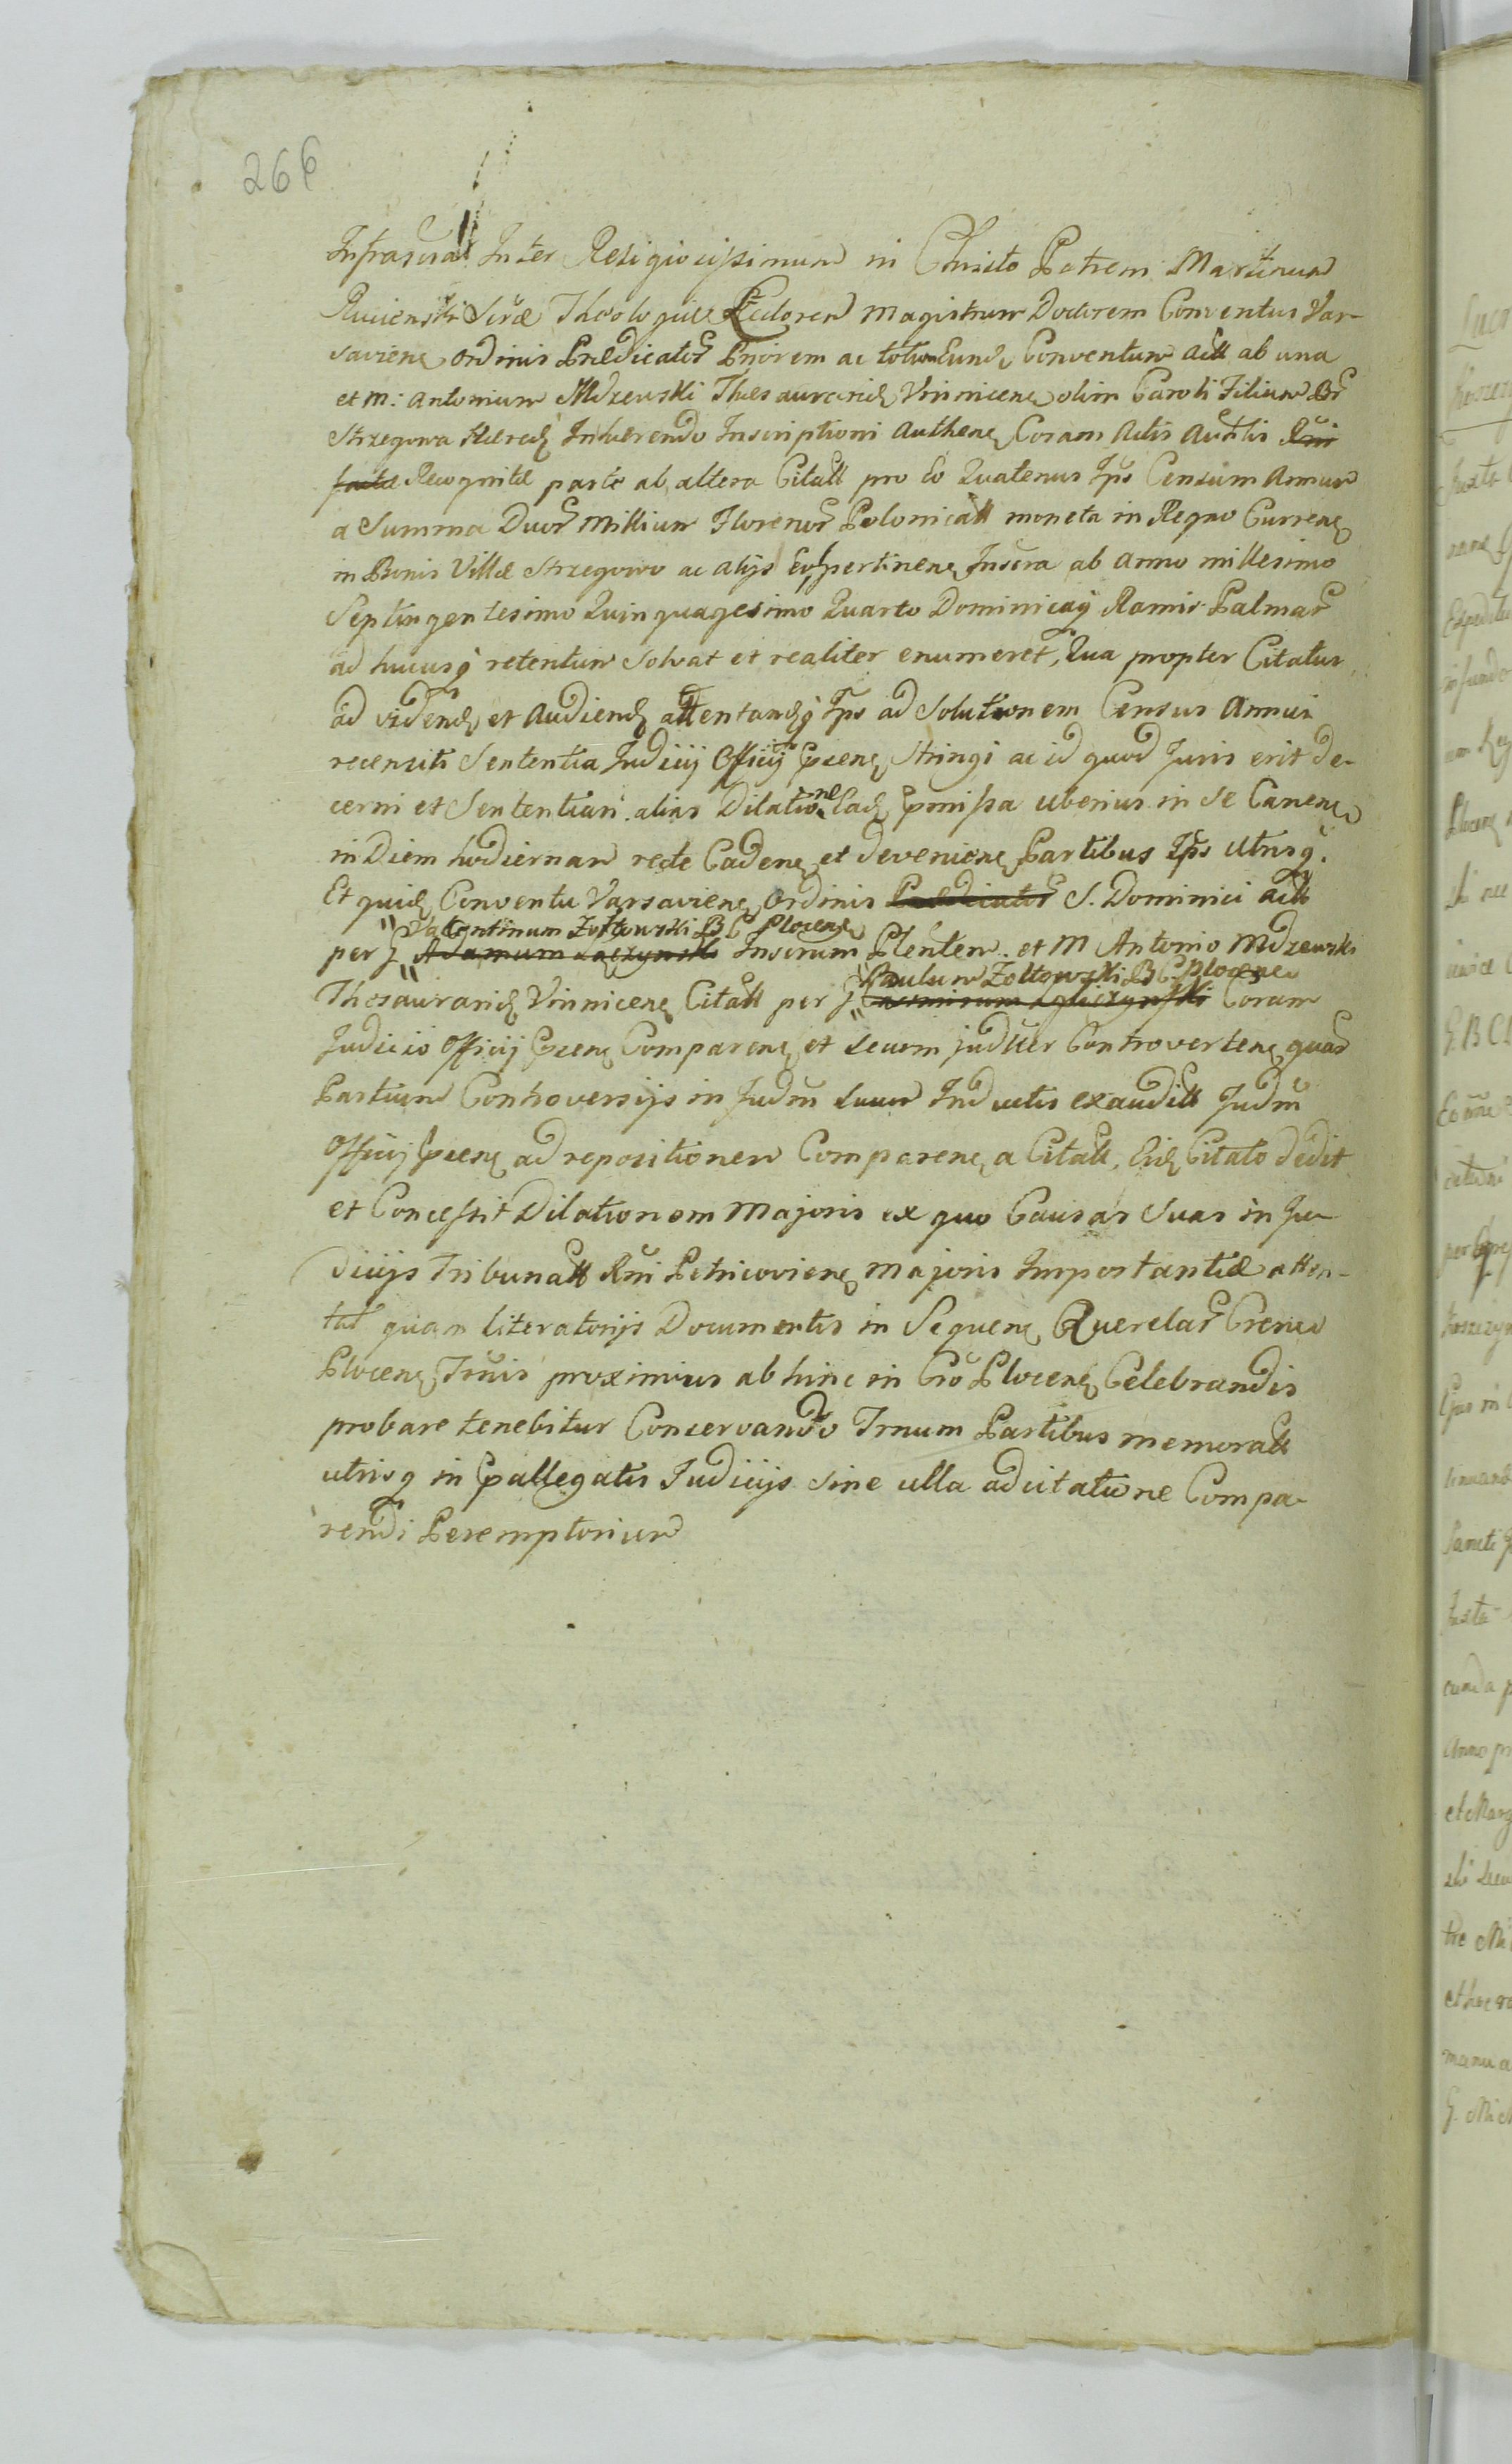 266
Infrascra Inter Religiosissimum in Christo Patrem Martinum
Sacræ Theologiæ Lectorem Magistrum Doctorem Conventus Var-
saviens Ordinis Prædicator Priorem ac totum Eund Conventum Act ab una
et M: Antonium Mdzewski Thesaurarid Vinnicens olim Caroli Filium Br
Strzegowa Hæred Inhærendo Inscriptioni Authen Coram Actis
factæ Recognitæ parte ab altera Citatt pro Eo Quatenus Ips Censum Annum
a Summa Duor Millium Florenor Polonicatt moneta in Regno Currens
in Bonis Villæ Strzegowo ac alijs Eo pertinen Inscra ab Anno millesimo
Septingentesimo Quinquagesimo Quarto Dominicaq Ramis Palmar
ad hucusq retentum Solvat et realiter enumeret, Qua propter Citatus
ad vidend et Audiend attentandq Ips ad Solutionem Census Annui
recensiti Sententia Judicij Officij Pnens Stringi ac id quod Juris erit de-
cerni et Sententiari alias Dilatione Cad Pmissa uberius in Se Canens
in Diem hodiernam recte Cadens et deveniens Partibus Ips Utrisq.
Et quid Conventu Varsaviens Ordinis Prædicator S. Dominici Act
Valentinum Żołtowski B C Plocens
per G Adamum Łączynski Inscrum Plenten et M Antonio Mdzewski
Paulum Żołtowski B C Plocens
Thesaurarid Vinnicens Citatt per G Coram
Judicio Officij Pnens Comparens et Secum judtter Controvertens quar
Partium Controversijs in Judm Suum Inductis exauditt Judm
Officij Pnens ad repositionem Comparens a Citatt, Eid Citato dedit
et Concessit Dilationem Majoris ex quo Causas Suas in Ju-
dicijs Tribunatt Rni Petricoviens Majoris Importantiæ atten-
tat quam literatorijs Documentis in Sequens Querelar
Plocens Trnis proximius abhinc in Cro Plocens Celebrandis
probare tenebitur Conservando Trnum Partibus memoratt
utrisq in Pallegatis Judicijs Sine ulla adcitatione Compa-
rendi Peremptorium